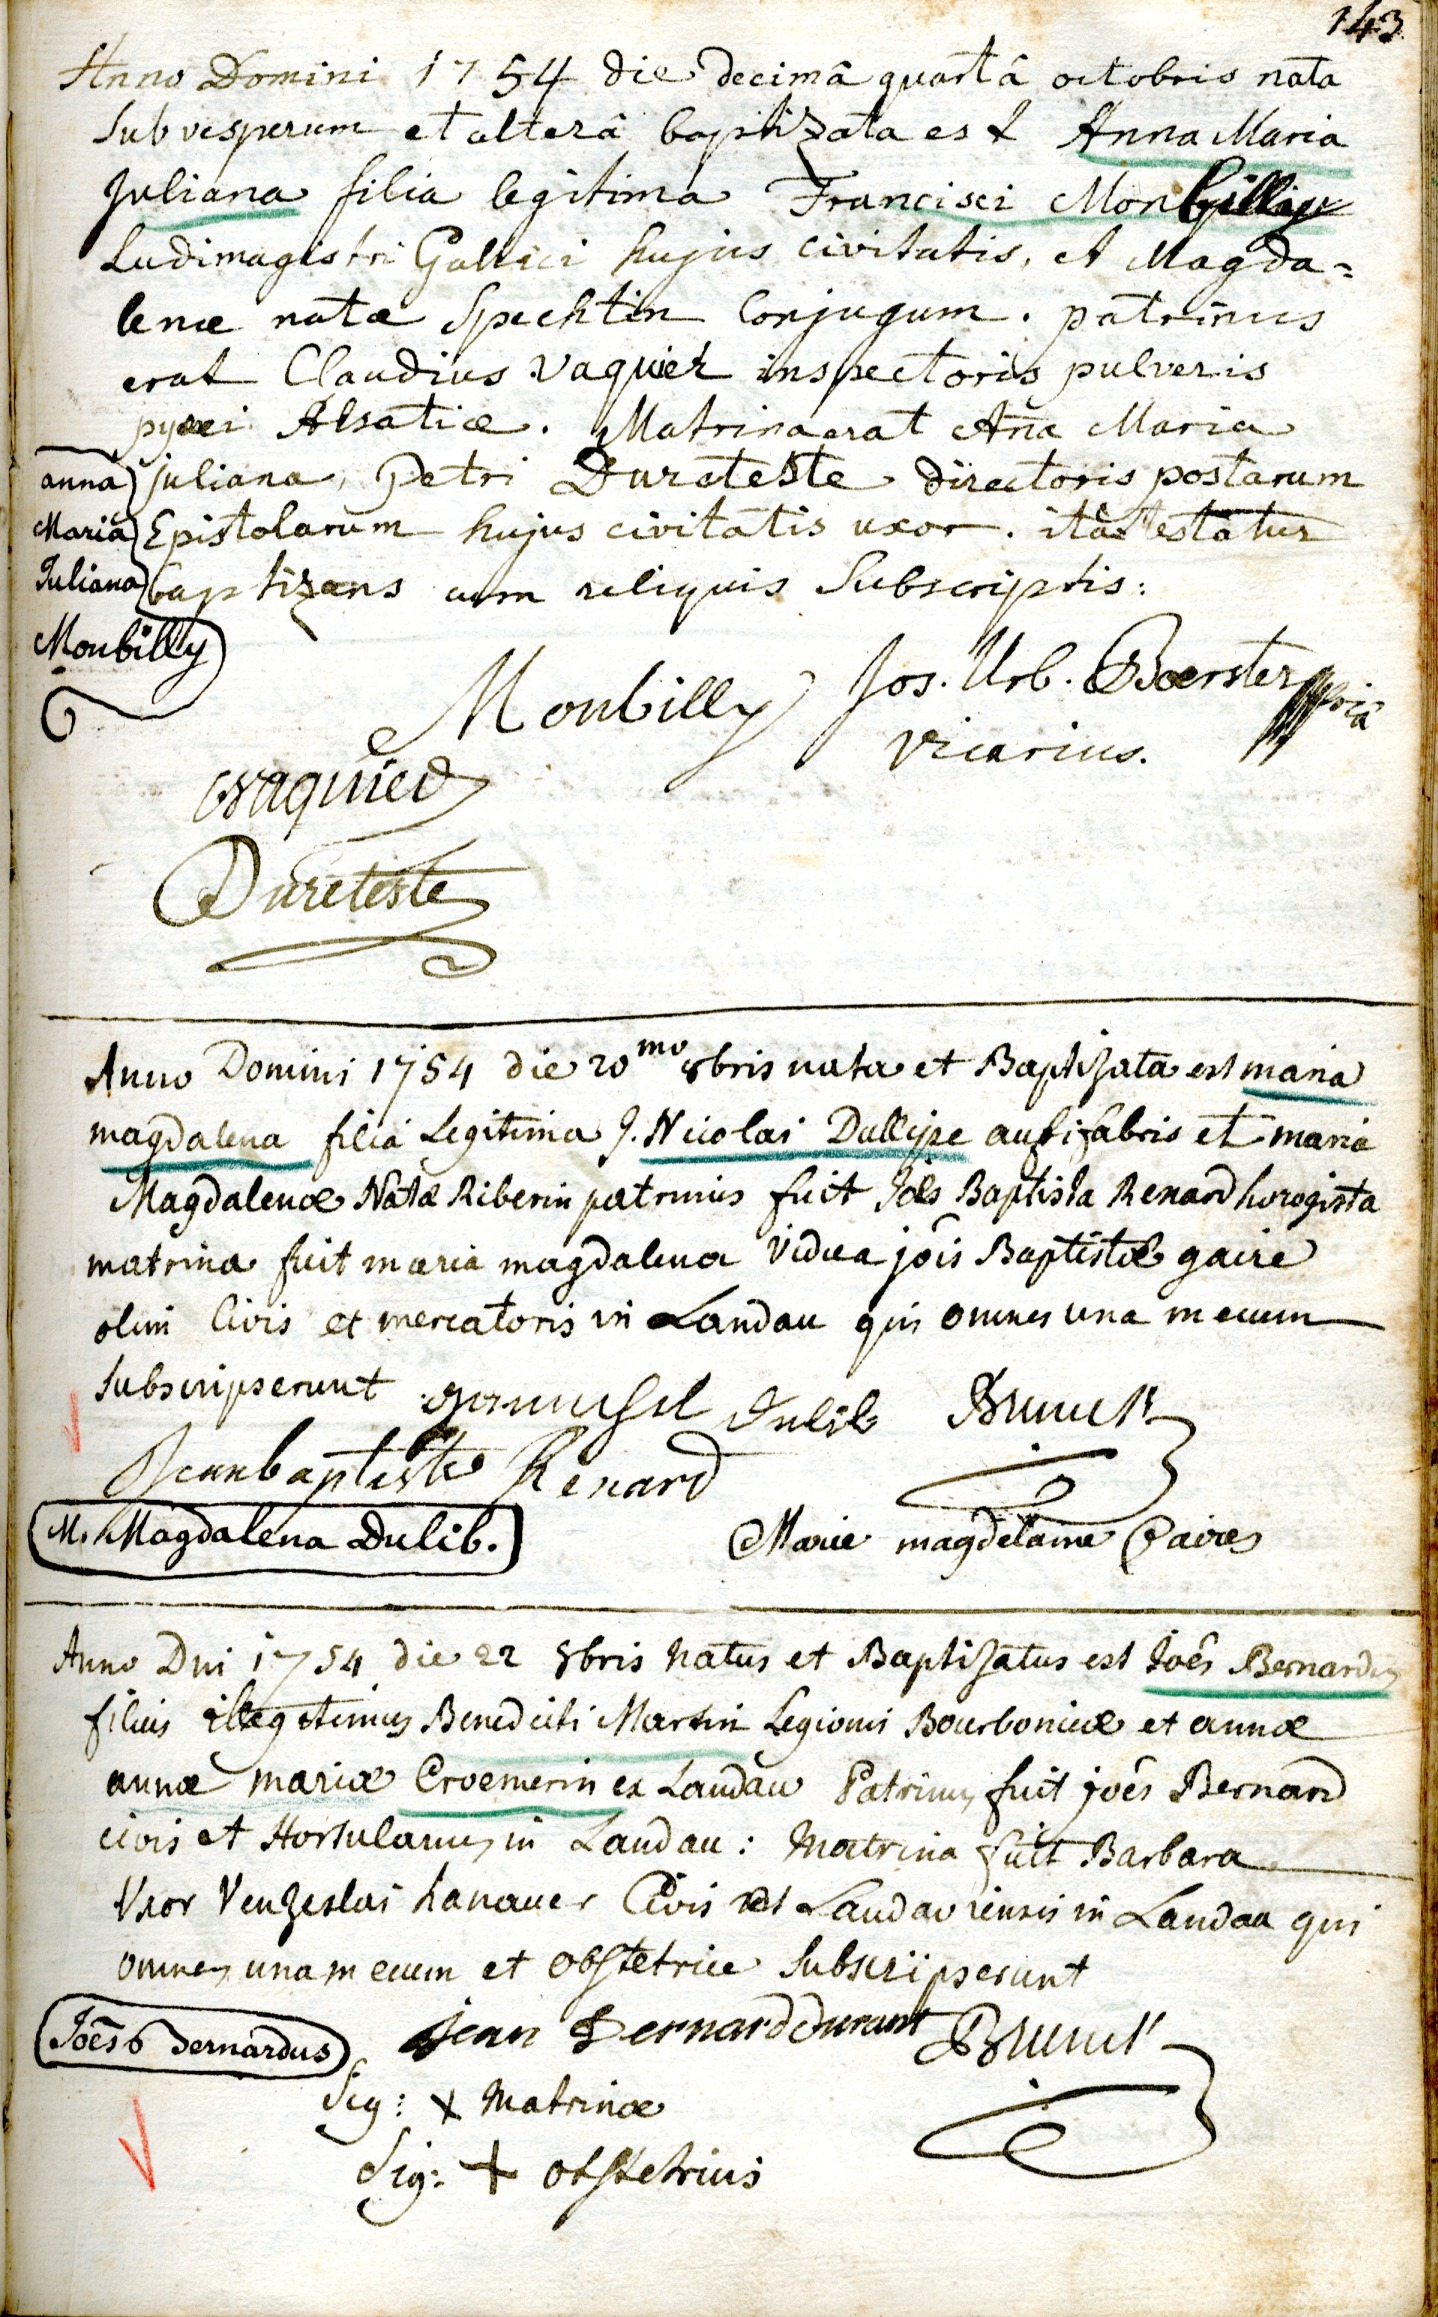 143.
Anno Domini 1754 die decimâ quartâ octobris nata
sub vesperum et alterâ baptizata est Anna Maria
Juliana filia legitima Francisci Monbilly
Ludimagistri Gallici hujus civitatis, et Magda=
lenæ natæ Spechtin Conjugum. patrinus
erat Claudius Vaquier inspectoris pulveris
pyrei Alsatiæ. Matrina erat Aña Maria
juliana, Petri Dureteste directoris postarum
Epistolarum hujus civitatis uxor. ità testatur
baptizans cum reliquis Subscriptis:
anna
Maria
Juliana
Monbilly
Monbilly Jos. Urb. Boerster
vicarius.
Vaquier
Dureteste
Anno Domini 1754 die 20mo 8bris nata et Baptisata est maria
magdalena filia Legitima J. Nicolai Dullipe aurifabris et maria
Magdalenæ Natæ Riberin patrinus fuit Joës Baptista Renard horogista
matrina fuit maria magdalena Vidua jois Baptistæ gaire
olim Civis et mercatoris in Landau qui omnes una mecum
Subscripserunt dulib Brunck
Jean baptiste Renard
M. Magdalena Dulib. Marie magdelaine Gaires
Anno Dni 1754 die 22 8bris natus et Baptisatus est Joês Bernardus
filius illegetimus Benedicti Martin Legionis Bourbonicæ et annæ
annæ mariæ Croemerin ex Landau Patrinus fuit joês Bernard
civis et Hortulanus in Landau: Matrina fuit Barbara
Uxor Venzeslai hanauer Civis in Landau qui
omnes una mecum et obstetrice Subscripserunt
Joês Bernardus Jean Bernard durant Brunck
Sig: + Matrinæ
Sig: + obstetricis